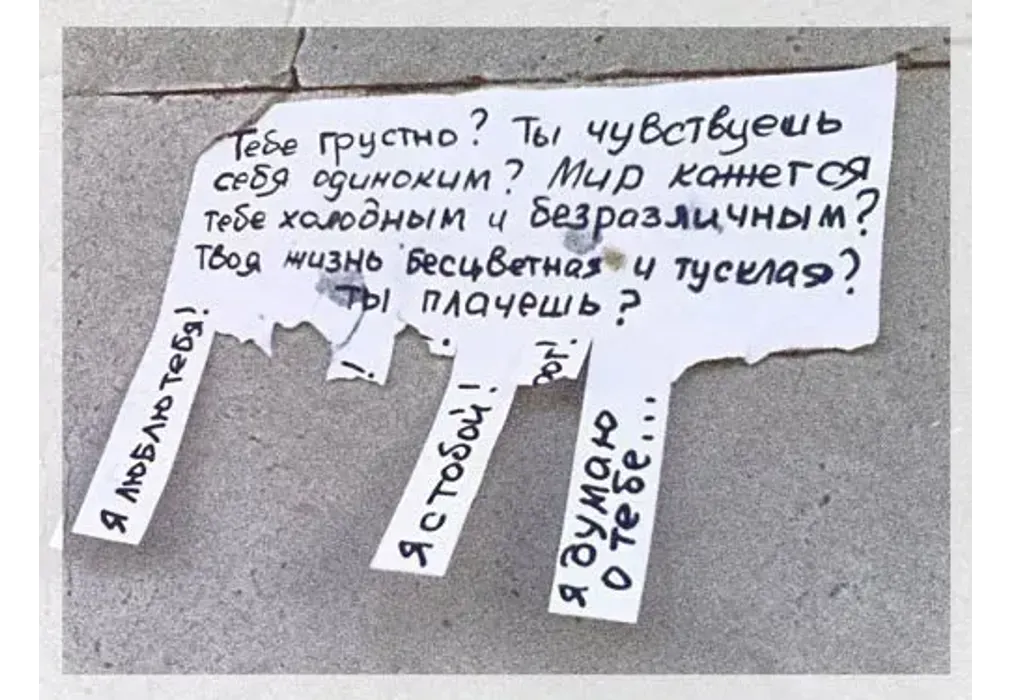 Тебе грустно? Ты чувствуешь
себя одиноким? Мир кажется
тебе холодным и безразличным?
Твоя жизнь бесцветная и тусклая?
Ты плачешь?
Я ЛЮБЛЮ ТЕБЯ!
!
!
Я С ТОБОЙ!
ог!
Я ДУМАЮ
О ТЕБЕ...